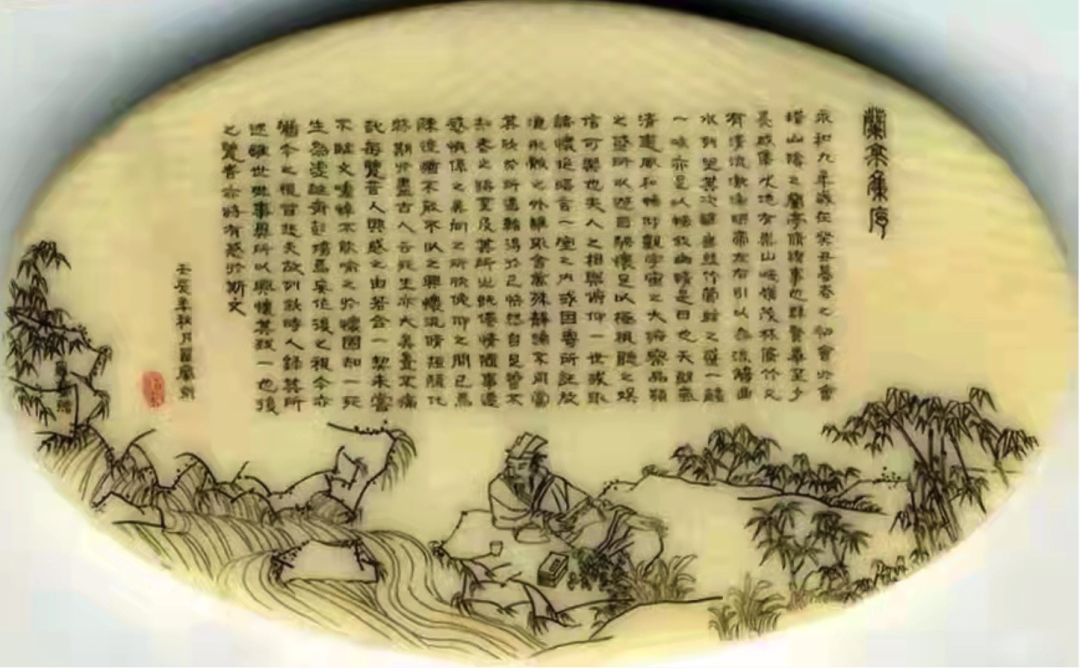 蘭亭集序
永和九年歲在癸丑暮春之初會於會
稽山陰之蘭亭脩禊事也群賢畢至少
長咸集此地有崇山峻嶺茂林脩竹又
有清流激湍映帶左右引以為流觴曲
水列坐其次雖無絲竹管絃之盛一觴
一詠亦足以暢敘幽情是日也天朗氣
清惠風和暢仰觀宇宙之大俯察品類
之盛所以遊目騁懷足以極視聽之娛
信可樂也夫人之相與俯仰一世或取
諸懷抱晤言一室之內或因寄所託放
浪形骸之外雖取舍萬殊靜躁不同當
其欣於所遇暫得於己怏然自足曾不
知老之將至及其所之既倦情隨事遷
感慨係之矣向之所欣俛仰之間已為
陳迹猶不能不以之興懷況脩短隨化
終期於盡古人云死生亦大矣豈不痛
哉每覽昔人興感之由若合一契未嘗
不臨文嗟悼不能喻之於懷固知一死
生為虛誕齊彭殤為妄作後之視今亦
猶今之視昔悲夫故列敘時人錄其所
述雖世殊事異所以興懷其致一也後
之覽者亦將有感於斯文
壬辰年秋月刻